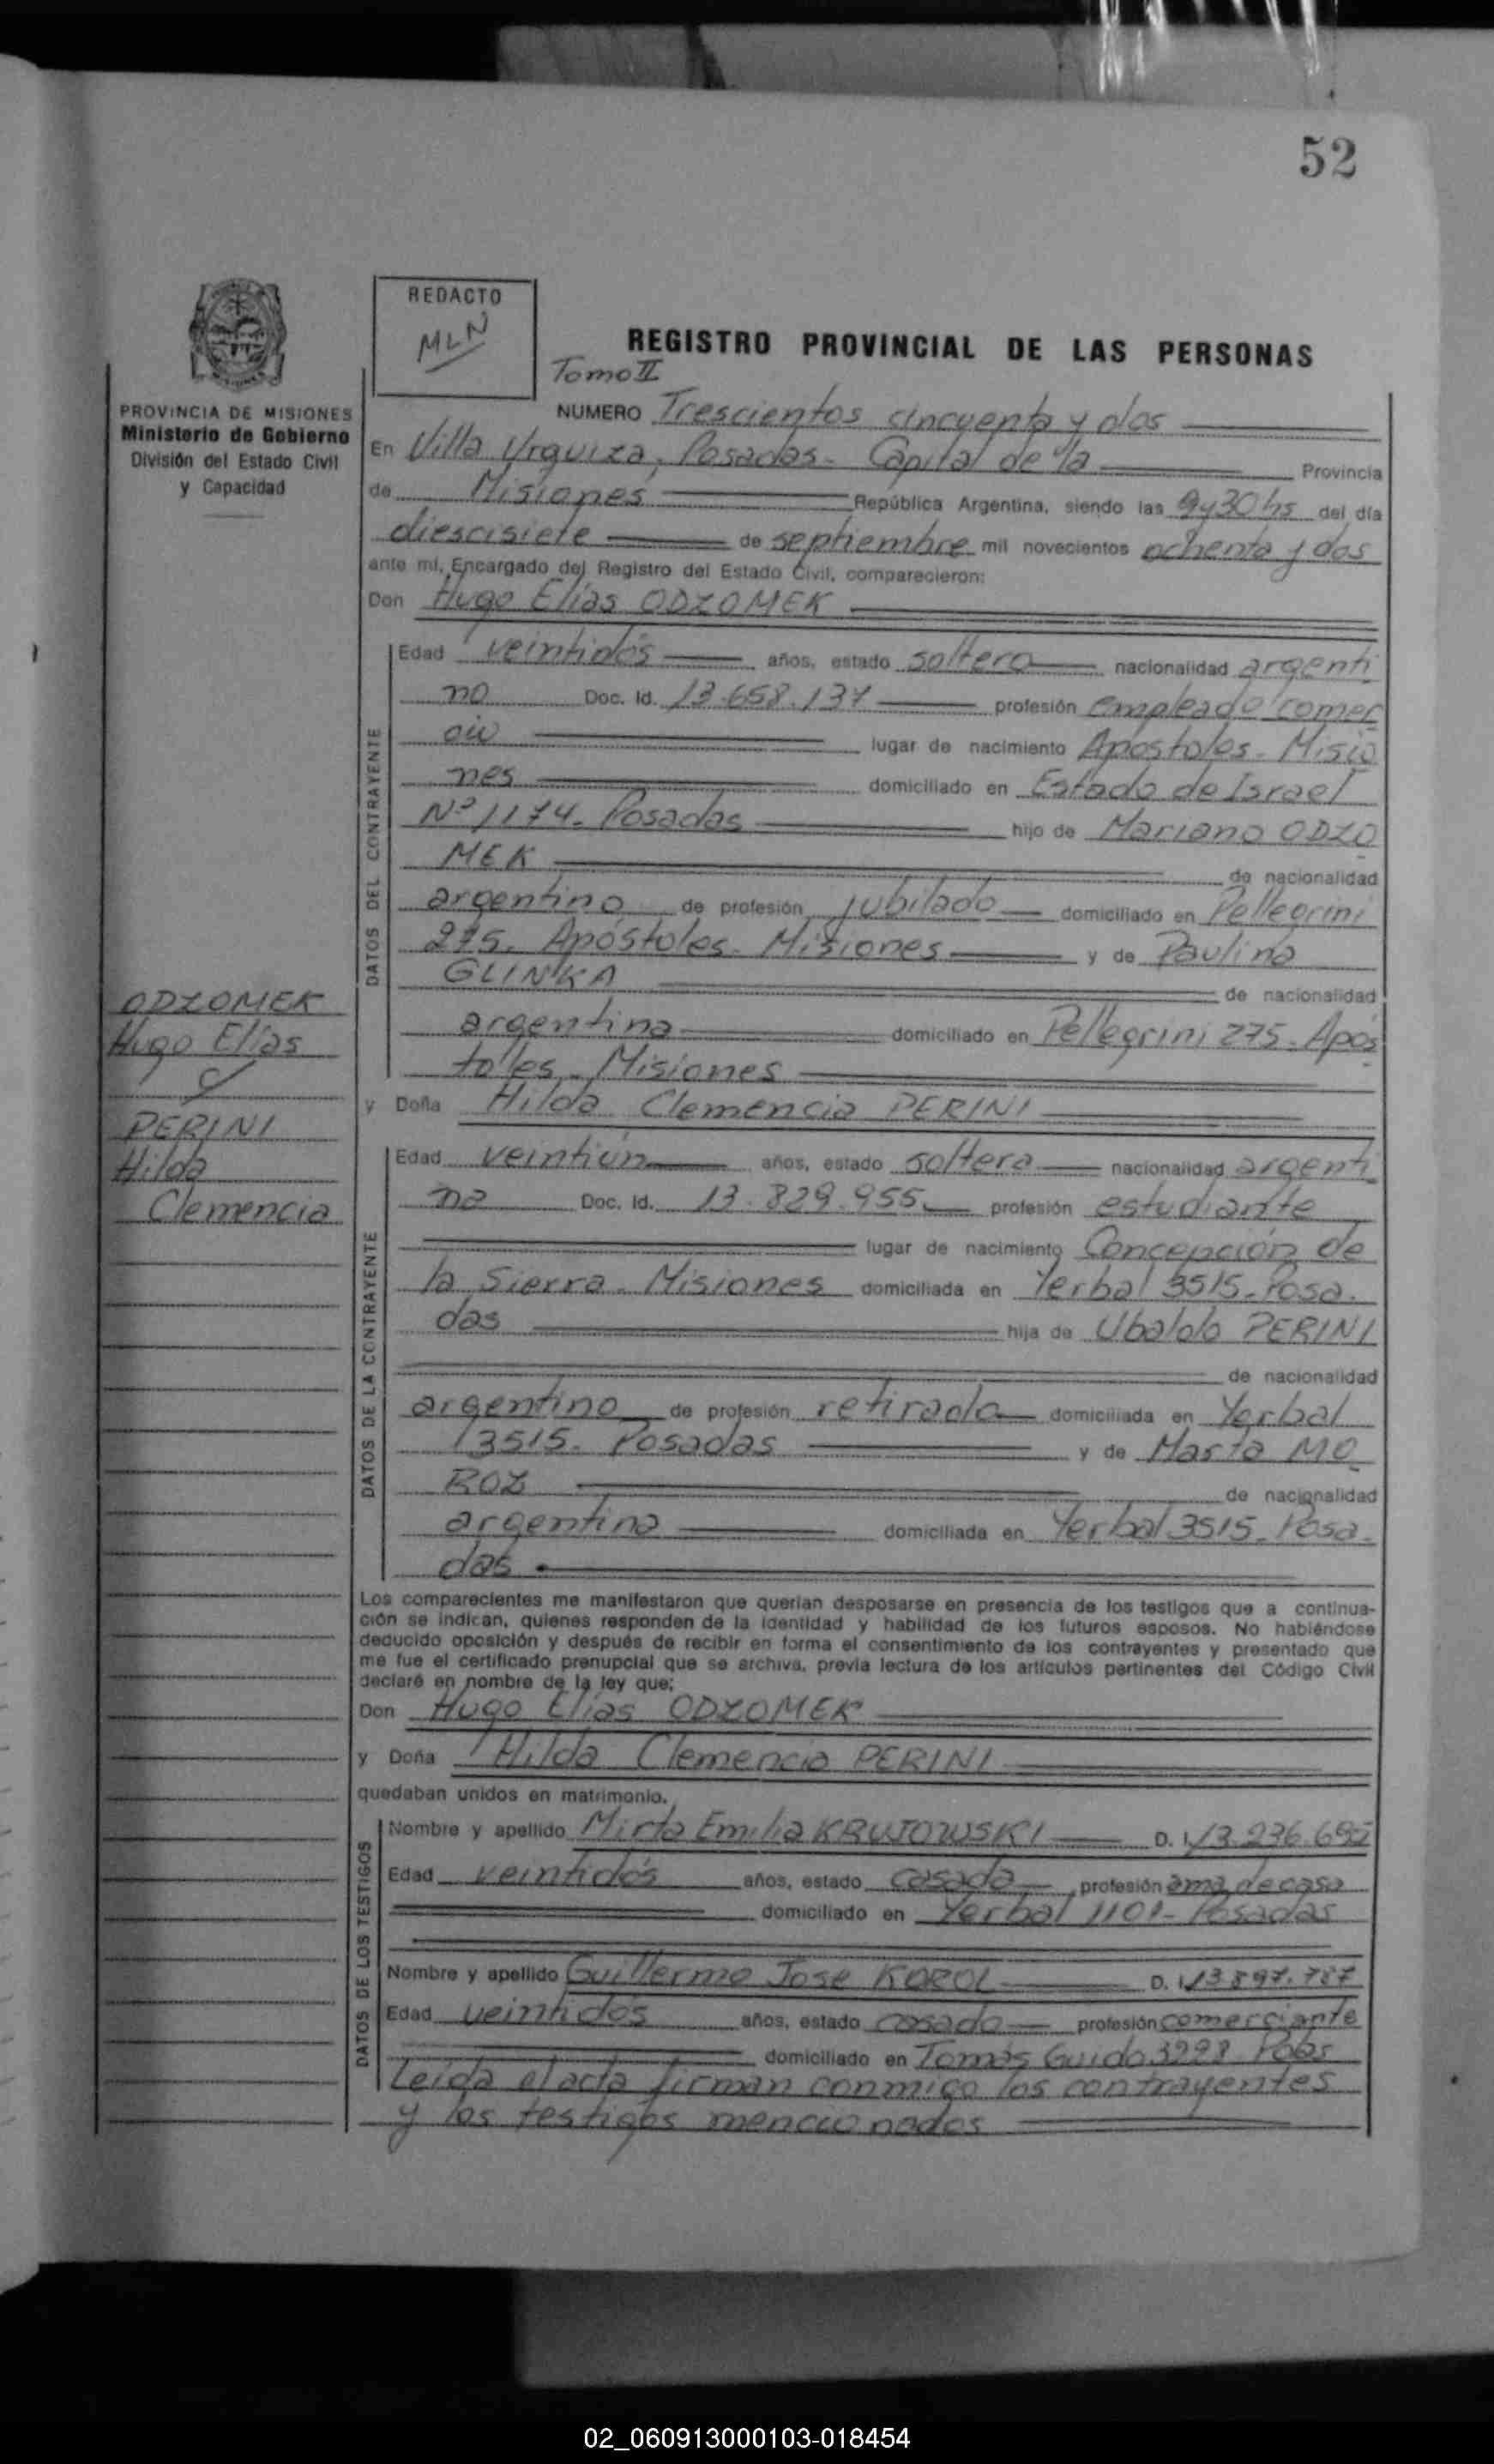 52
REDACTO
MLN
REGISTRO PROVINCIAL DE LAS PERSONAS
Tomo II
PROVINCIA DE MISIONES
Ministerio de Gobierno
División del Estado Civil
y Capacidad
NUMERO Trescientos cincuenta y dos
En Villa Urquiza, Posadas - Capital de la Provincia
de Misiones República Argentina, siendo las 9y30 hs del día
diescisiete de septiembre mil novecientos ochenta y dos
ante mí, Encargado del Registro del Estado Civil, comparecieron:
Don Hugo Elías ODZOMEK
DATOS DEL CONTRAYENTE
Edad veintidós años, estado soltero nacionalidad argenti
no Doc. Id. 13.658.137 profesión empleado comer
cio lugar de nacimiento Apóstoles - Misio
nes domiciliado en Estado de Israel
Nº 1174. Posadas hijo de Mariano ODZO
MEK de nacionalidad
argentino de profesión jubilado domiciliado en Pellegrini
275. Apóstoles - Misiones y de Paulina
GLINKA de nacionalidad
argentina domiciliado en Pellegrini 275. Após
toles - Misiones
ODZOMEK
Hugo Elías
y
PERINI
Hilda
Clemencia
y Doña Hilda Clemencia PERINI
DATOS DE LA CONTRAYENTE
Edad veintiún años, estado soltera nacionalidad argenti
na Doc. Id. 13.829.955 profesión estudiante
lugar de nacimiento Concepción de
la Sierra - Misiones domiciliada en Yerbal 3515 - Posa
das hija de Ubaldo PERINI
de nacionalidad
argentino de profesión retirado domiciliada en Yerbal
3515. Posadas y de Marta MO
ROZ de nacionalidad
argentina domiciliada en Yerbal 3515 - Posa
das
Los comparecientes me manifestaron que querían desposarse en presencia de los testigos que a continua-
ción se indican, quienes responden de la identidad y habilidad de los futuros esposos. No habiéndose
deducido oposición y después de recibir en forma el consentimiento de los contrayentes y presentado que
me fue el certificado prenupcial que se archiva, previa lectura de los artículos pertinentes del Código Civil
declaré en nombre de la ley que:
Don Hugo Elías ODZOMEK
y Doña Hilda Clemencia PERINI
quedaban unidos en matrimonio.
DATOS DE LOS TESTIGOS
Nombre y apellido Mirta Emilia KRUJOWSKI D. I.
Edad veintidós años, estado casada profesión ama de casa
domiciliado en Yerbal 1101 - Posadas
Nombre y apellido Guillermo José KOROL D. I. 13.897.787
Edad veintidós años, estado casado profesión comerciante
domiciliado en Tomás Guido 3298 Pdas
Leída el acta firman conmigo los contrayentes
y los testigos mencionados
02_060913000103-018454